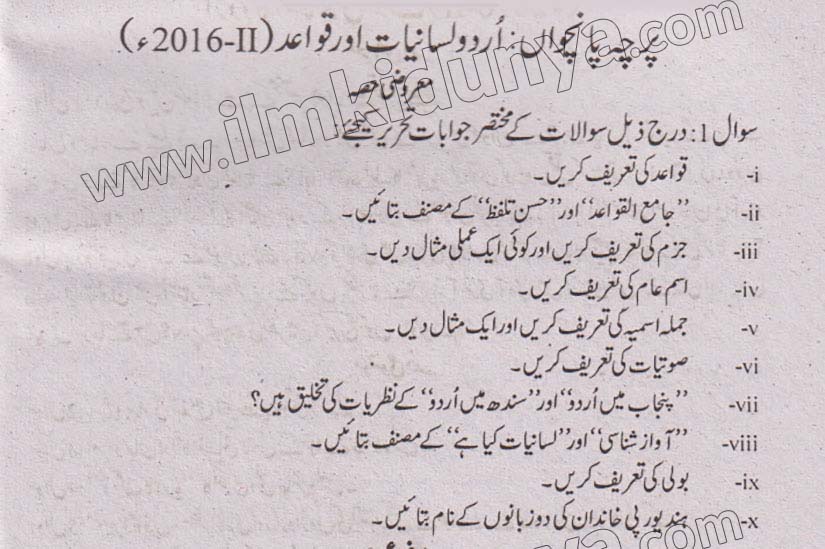 پرچہ پانچواں: اُردو لسانیات اور قواعد (2016-II ء)
معروضی حصہ
سوال 1: درج ذیل سوالات کے مختصر جوابات تحریر کیجئے:
i- قواعد کی تعریف کریں۔
ii- ’’جامع القواعد‘‘ اور ’’حسن تلفظ‘‘ کے مصنف بتائیں۔
iii- جزم کی تعریف کریں اور کوئی ایک عملی مثال دیں۔
iv- اسم عام کی تعریف کریں۔
v- جملہ اسمیہ کی تعریف کریں اور ایک مثال دیں۔
vi- صوتیات کی تعریف کریں۔
vii- ’’پنجاب میں اُردو‘‘ اور ’’سندھ میں اُردو‘‘ کے نظریات کی تخلیق ہیں؟
viii- ’’آواز شناسی‘‘ اور ’’لسانیات کیا ہے‘‘ کے مصنف بتائیں۔
ix- بولی کی تعریف کریں۔
x- ہند یورپی خاندان کی دو زبانوں کے نام بتائیں۔
www.ilmkidunya.com
www.ilmkidunya.com